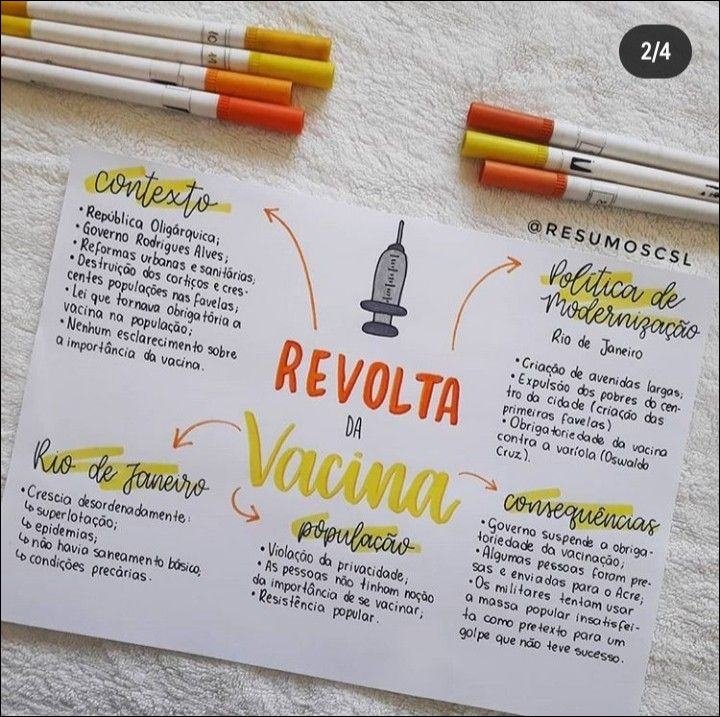 2/4
@RESUMOSCSL
contexto
• República Oligárquica;
• Governo Rodrigues Alves;
• Reformas urbanas e sanitárias;
• Destruição dos cortiços e cres-
centes populações nas favelas;
• Lei que tornava obrigatória a
vacina na população;
• Nenhum esclarecimento sobre
a importância da vacina.
Política de
modernização
Rio de Janeiro
• Criação de avenidas largas;
• Expulsão dos pobres do cen-
tro da cidade (criação das
primeiras favelas)
• Obrigatoriedade da vacina
contra a varíola (Oswaldo
Cruz).
REVOLTA
DA
Vacina
Rio de Janeiro
• Crescia desordenadamente:
↳ superlotação;
↳ epidemias;
↳ não havia saneamento básico;
↳ condições precárias.
população
• Violação da privacidade;
• As pessoas não tinham noção
da importância de se vacinar;
• Resistência popular.
consequências
• Governo suspende a obriga-
toriedade da vacinação;
• Algumas pessoas foram pre-
sas e enviadas para o Acre;
• Os militares tentam usar
a massa popular insatisfei-
ta como pretexto para um
golpe que não teve sucesso.